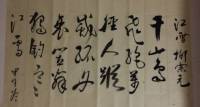 江雪 柳宗元
千山鳥
飛絶萬
徑人蹤
滅孤舟
蓑笠翁
獨釣寒
江雪